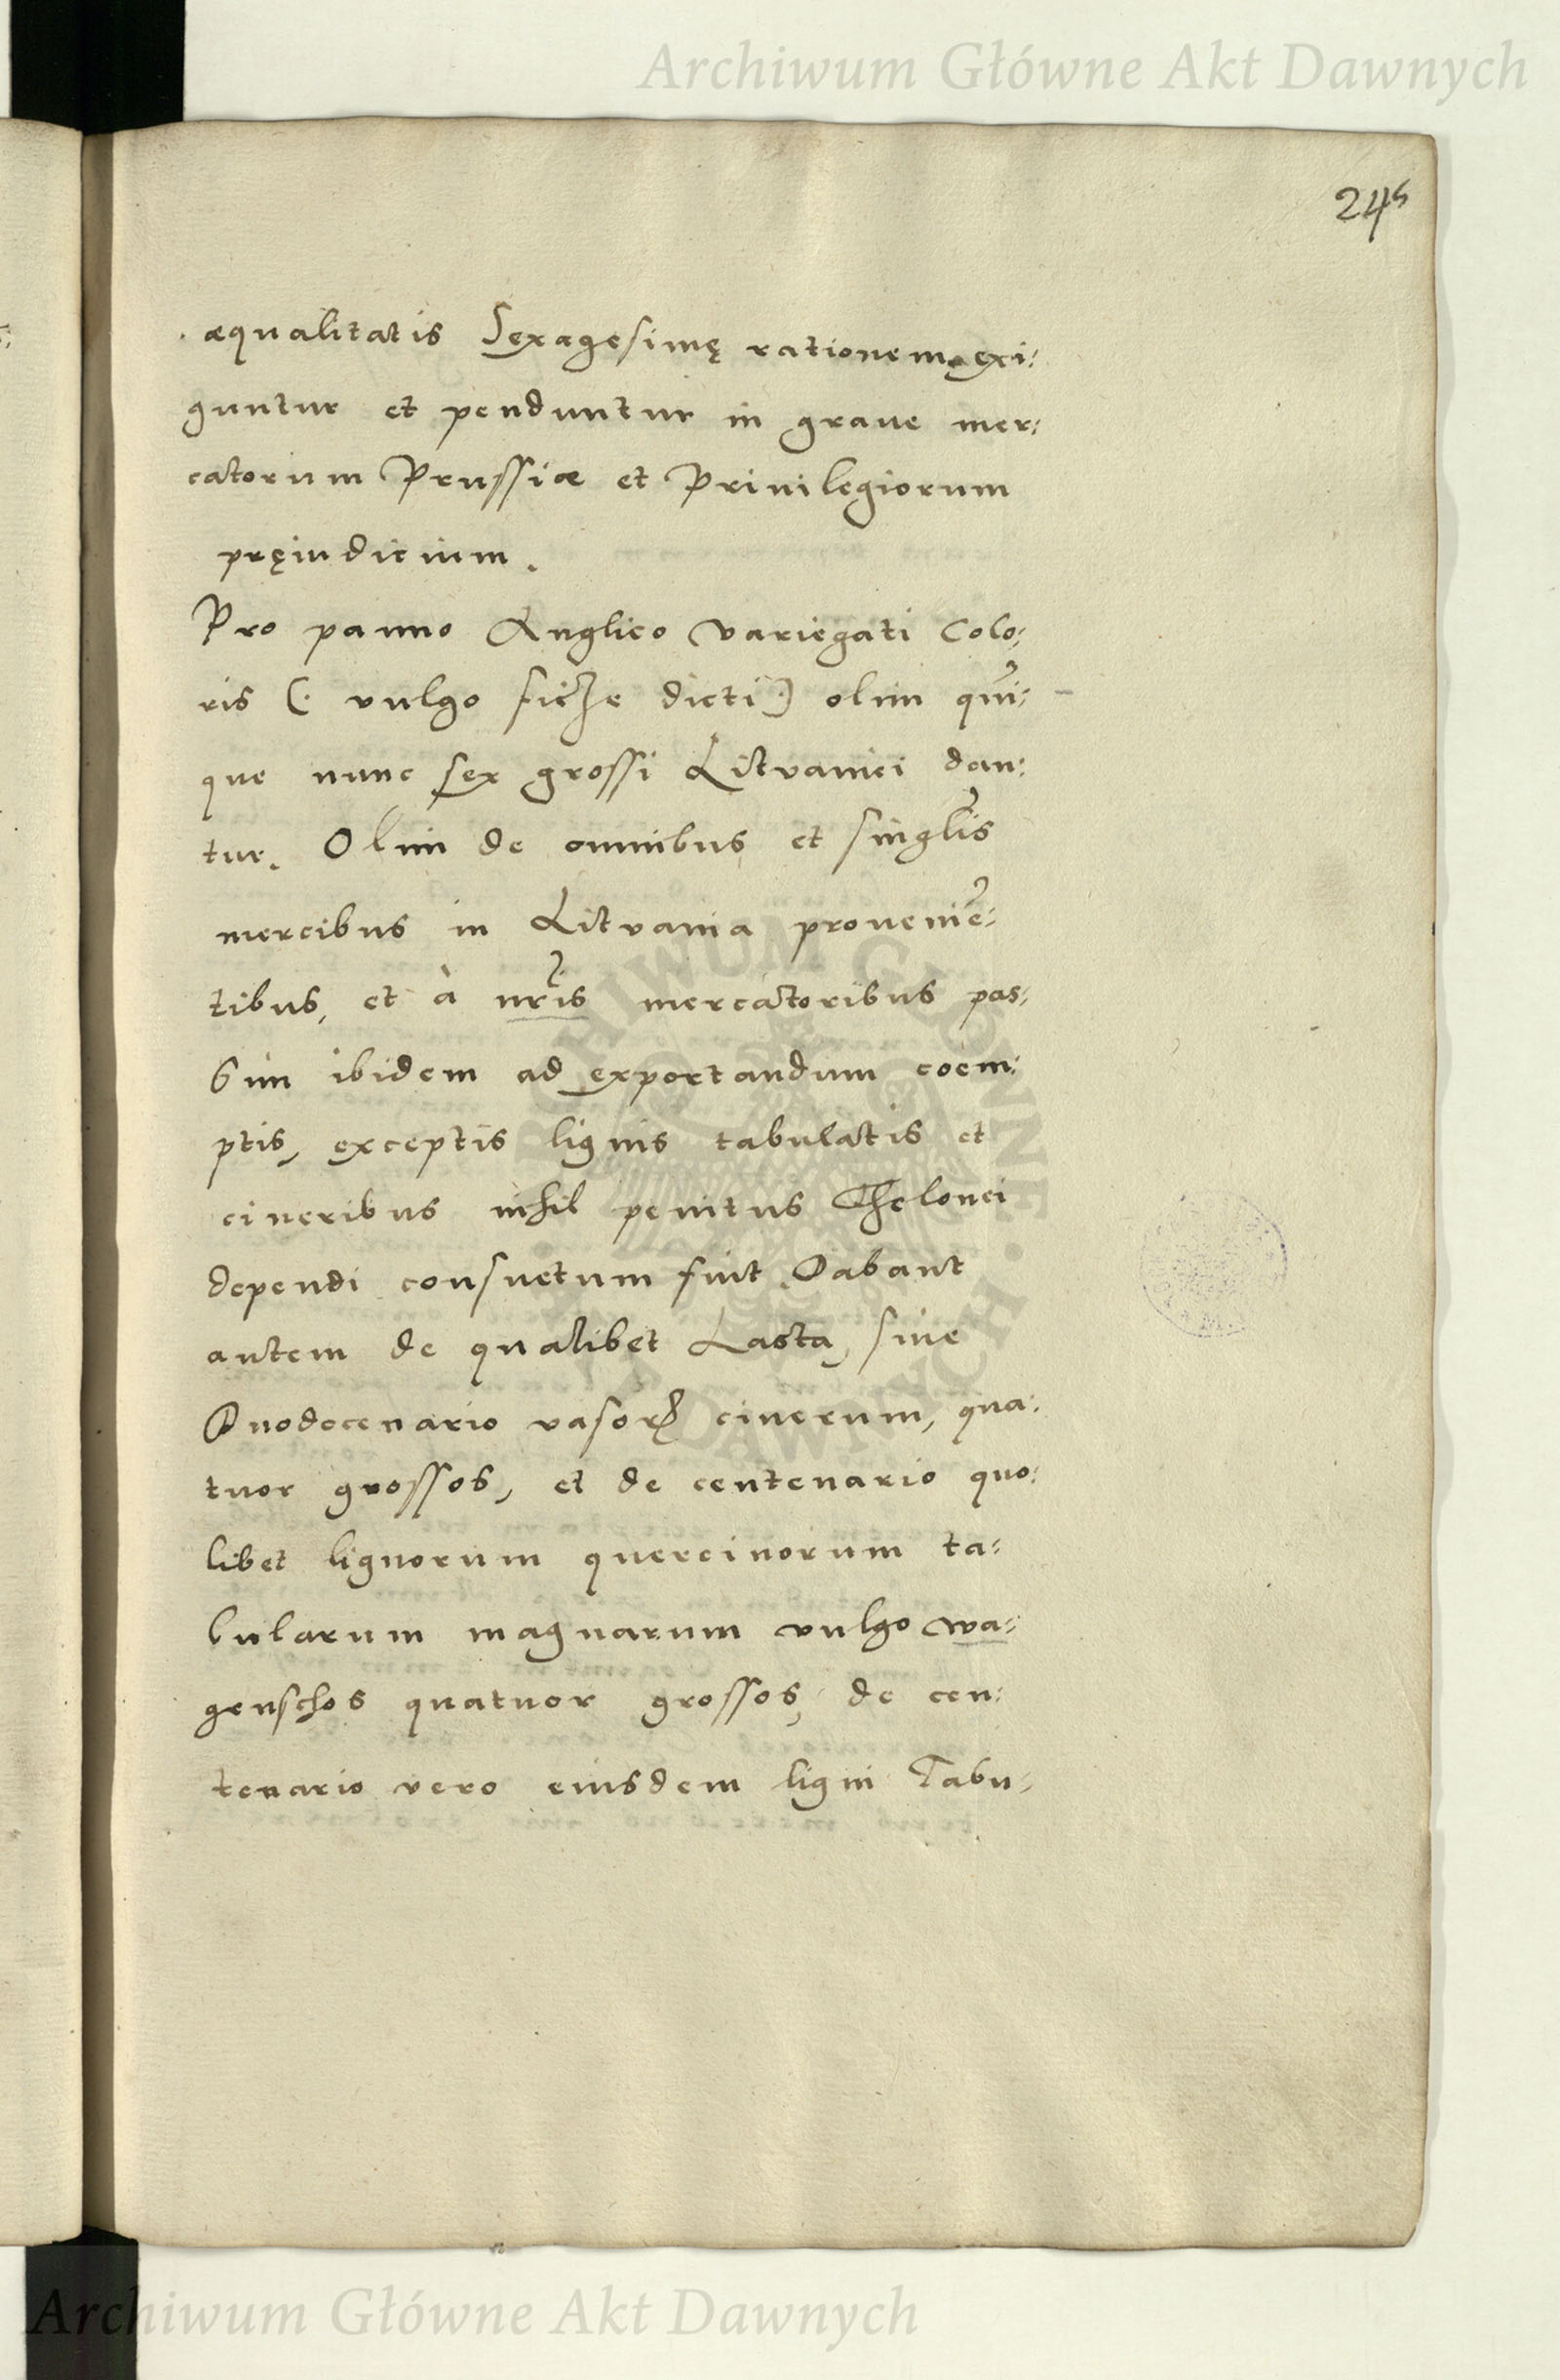 Archiwum Główne Akt Dawnych
245
æqualitatis Sexagesimę rationem exi:
guntur et penduntur in graue mer:
catorum Prussiæ et Priuilegiorum
pręiudicium.
Pro panno Anglico variegati Colo:
ris (: vulgo ficze dicti :) olim qui̅:
que nunc sex grossi Lituanici dan:
tur. Olim de omnibus et singlis
mercibus in Lituania prouenie̅:
tibus, et à nris mercatoribus pas:
sim ibidem ad exportandum coem:
ptis, exceptis lignis tabulatis et
cineribus nihil penitus Thelonei
dependi consuetum fuit. Dabant
autem de qualibet Lasta, siue
Duodecenario vasorꝝ cinerum, qua:
tuor grossos, et de centenario quo:
libet lignorum quercinorum ta:
bularum magnarum vulgo wa:
genschos quatuor grossos, de cen:
tenario vero eiusdem ligni Tabu:
Archiwum Główne Akt Dawnych